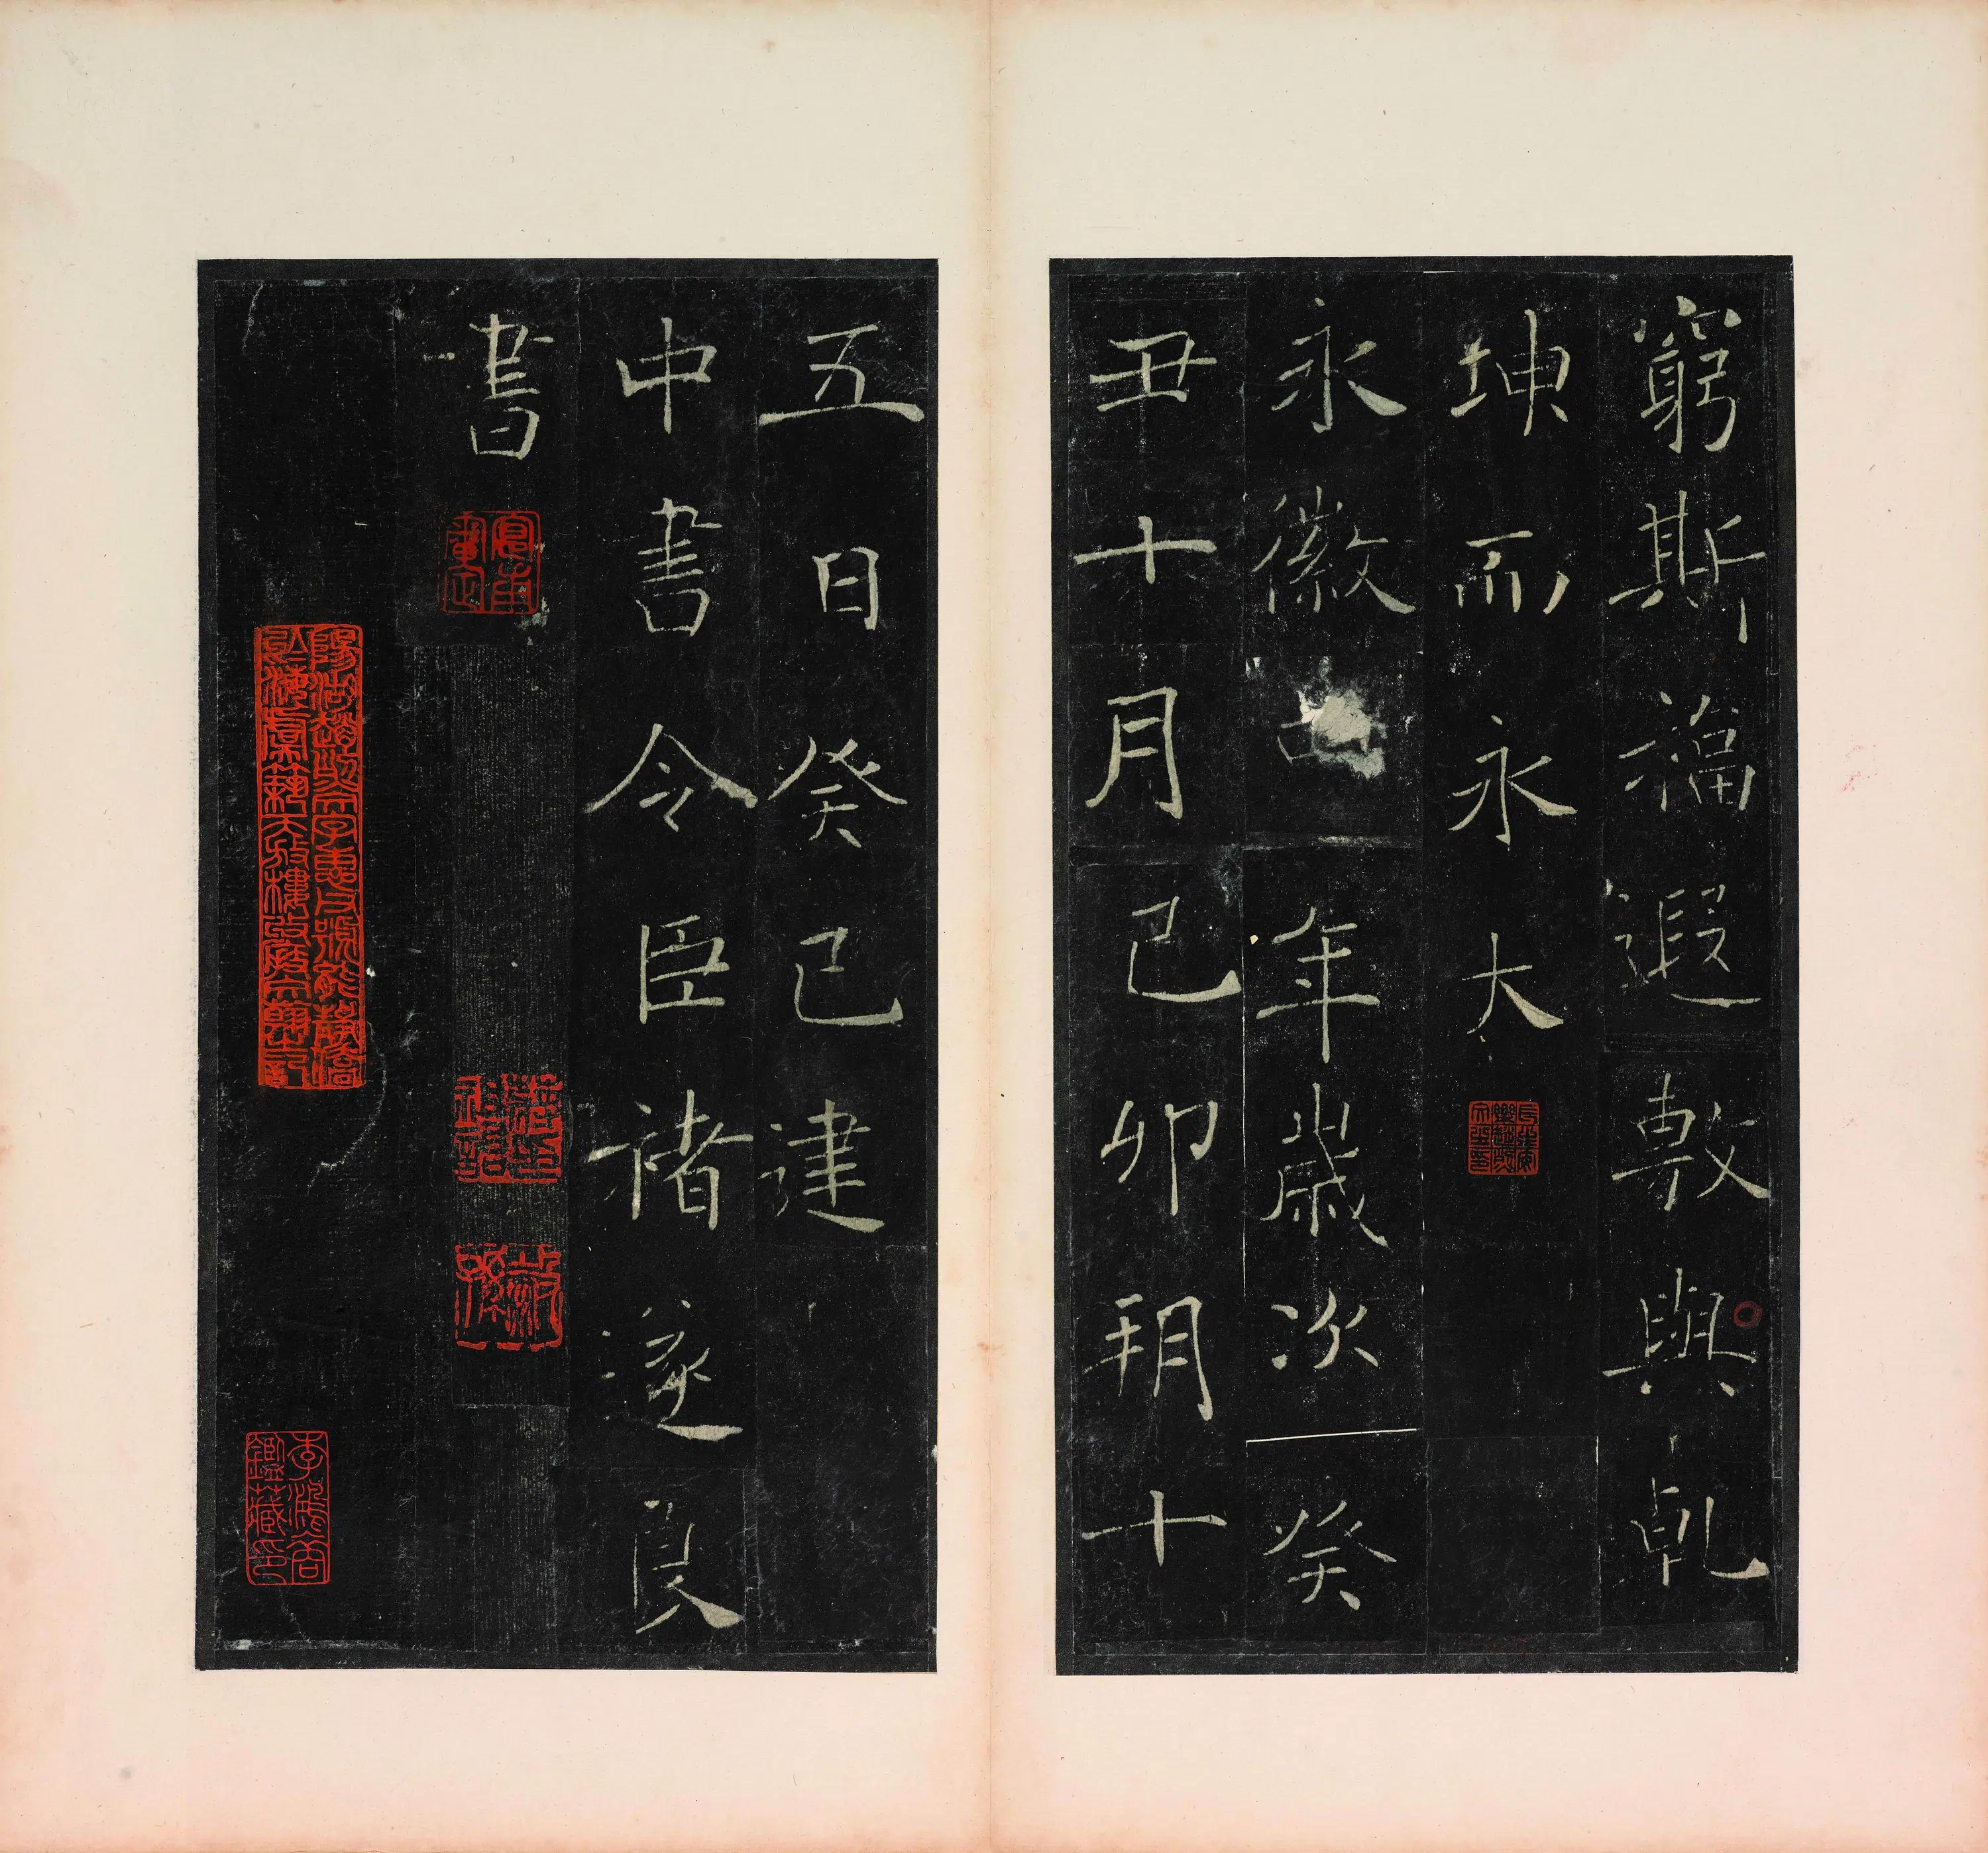 窮斯福遐敷與乹
坤而永大
永徽年歲次癸
丑十月己卯朔十
五日癸巳建
中書令臣褚遂良
書
李鴻裔
鑑藏印